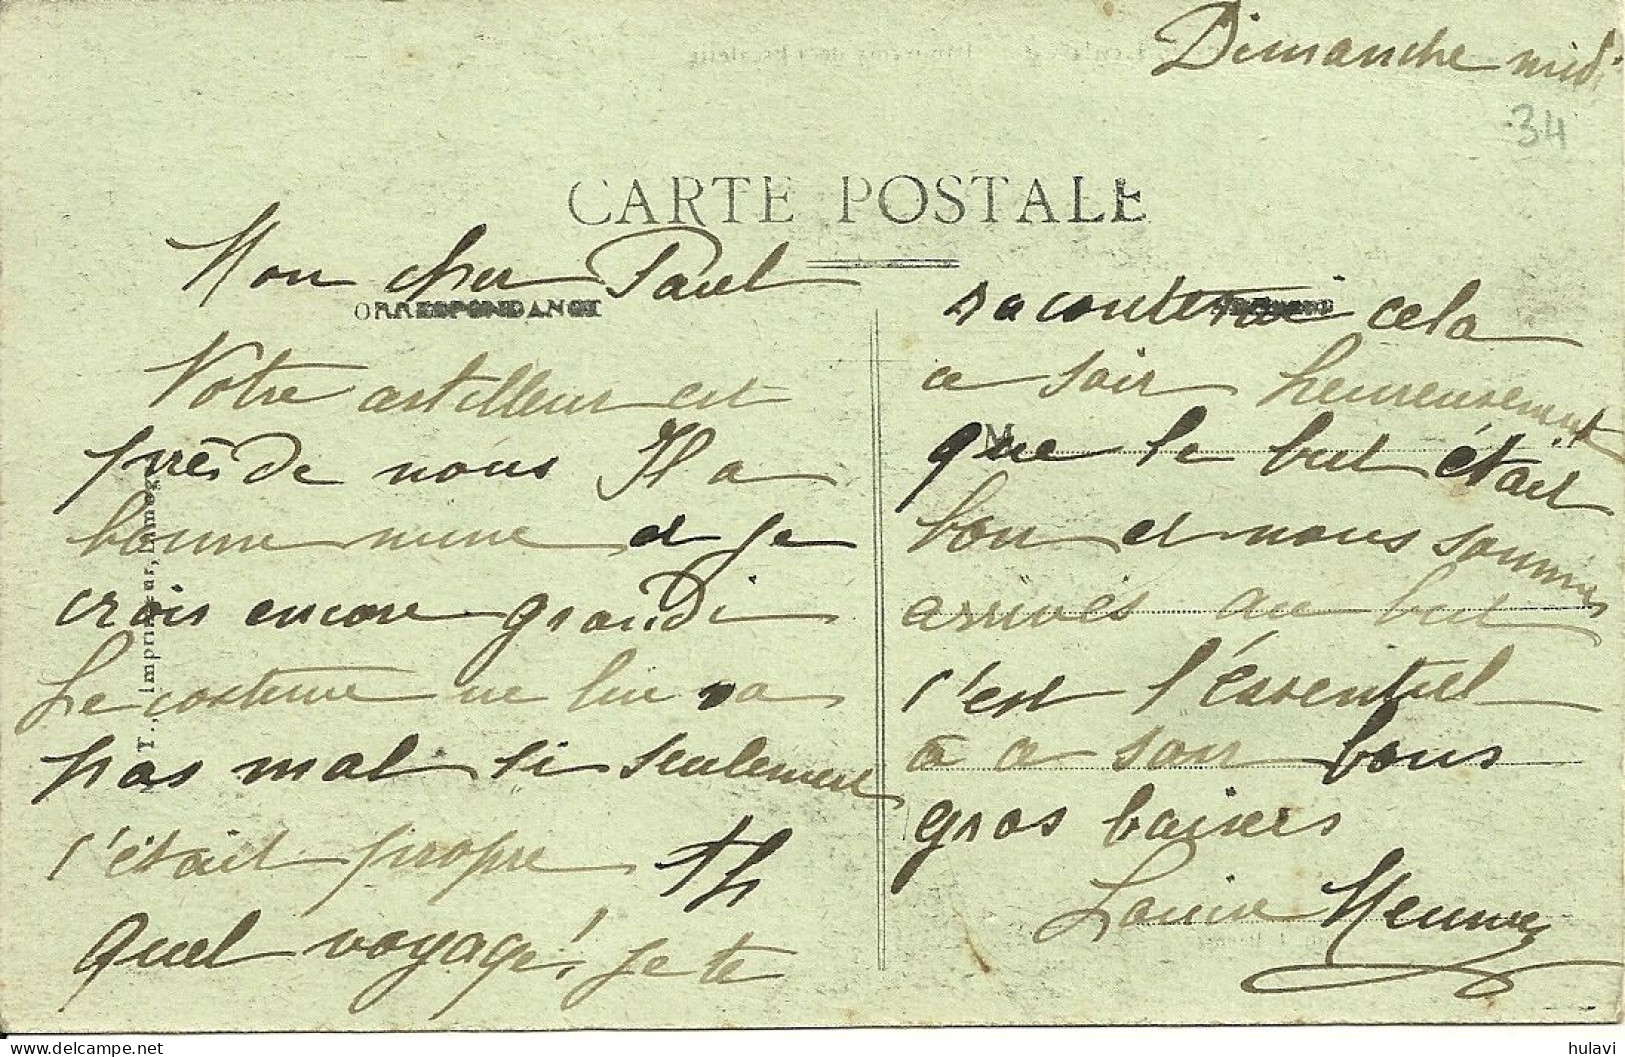 Dimanche midi
34
CARTE POSTALE
ORRESPONDANCE
Mon cher Paul
Votre artilleur est
près de nous Il a
bonne mine et je
crois encore grandi
Le costume ne lui va
pas mal si seulement
c'était propre Ah
Quel voyage! je te
T., imprimeur, Limoges
raconterai cela
ce soir heureusement
M
que le but était
bon et nous sommes
arrivés au but
c'est l'essentiel
à ce soir bons
gros baisers
Louise
hulavi